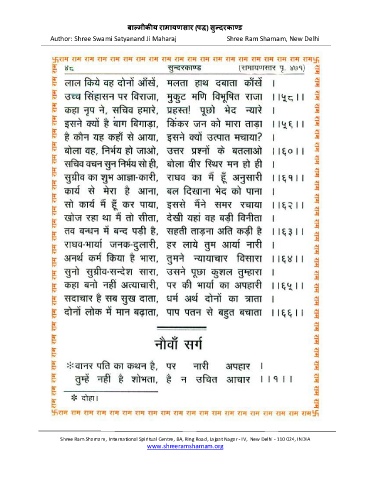 बाल्मीकीय रामायणसार (पद्य) सुन्दरकाण्ड
Author: Shree Swami Satyanand Ji Maharaj Shree Ram Sharnam, New Delhi
राम राम राम राम राम राम राम राम राम राम राम राम राम राम राम राम राम राम राम राम
४८ सुन्दरकाण्ड (रामायणसार पृ. ४७१)
लाल किये वह दोनों आँखें, मलता हाथ दबाता काँखें ।
उच्च सिंहासन पर विराजा, मुकुट मणि विभूषित राजा ।।५८।।
कहा नृप ने, सचिव हमारे, प्रहस्त! पूछो भेद न्यारे ।
इसने क्यों है बाग बिगाड़ा, किंकर जन को मारा ताड़ा ।।५९।।
है कौन यह कहाँ से आया, इसने क्यों उत्पात मचाया?
बोला वह, निर्भय हो जाओ, उत्तर प्रश्नों के बतलाओ ।।६०।।
सचिव वचन सुन निर्भय सो ही, बोला वीर स्थिर मन हो ही ।
सुग्रीव का शुभ आज्ञा-कारी, राघव का मैं हूँ अनुसारी ।।६१।।
कार्य से मेरा है आना, बल दिखाना भेद को पाना ।
सो कार्य मैं हूँ कर पाया, इससे मैंने समर रचाया ।।६२।।
खोज रहा था मैं तो सीता, देखी यहां वह बड़ी विनीता ।
तव बन्धन में बन्द पड़ी है, सहती ताड़ना अति कड़ी है ।।६३।।
राघव-भार्या जनक-दुलारी, हर लाये तुम आर्या नारी ।
अनर्थ कर्म किया है भारा, तुमने न्यायाचार विसारा ।।६४।।
सुनो सुग्रीव-सन्देश सारा, उसने पूछा कुशल तुम्हारा ।
कहा बनो नहीं अत्याचारी, पर की भार्या का अपहारी ।।६५।।
सदाचार है सब सुख दाता, धर्म अर्थ दोनों का त्राता ।
दोनों लोक में मान बढ़ाता, पाप पतन से बहुत बचाता ।।६६।।
नौवाँ सर्ग
※वानर पति का कथन है, पर नारी अपहार ।
तुम्हें नहीं है शोभता, है न उचित आचार ।।१।।
※ दोहा।
राम राम राम राम राम राम राम राम राम राम राम राम राम राम राम राम राम राम राम राम
Shree Ram Sharnam, International Spiritual Centre, 8A, Ring Road, Lajpat Nagar - IV, New Delhi - 110 024, INDIA
www.shreeramsharnam.org